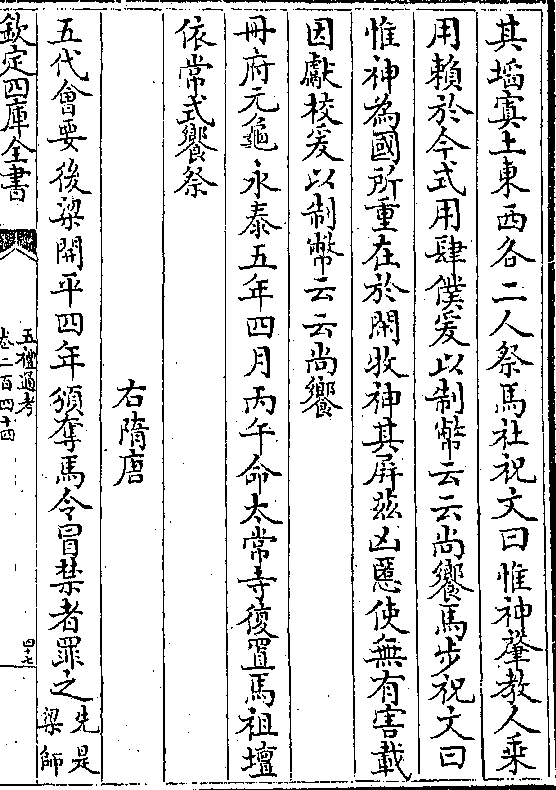 其壝寞土東西各二人祭馬社祝文曰惟神肇教人乘
用賴於今式用肆僕爰以制幣云云尚饗馬步祝文曰
惟神為國所重在於閑牧神其屏兹凶慝使無有害載
因獻校爰以制幣云云尚饗
冊府元龜永泰五年四月丙午命太常寺復置馬祖壇
依常式饗祭
右隋唐
五代會要後梁開平四年頒奪馬令冒禁者罪之先是
梁師
欽定四庫全書
五禮通考
卷二百四十四
四十七